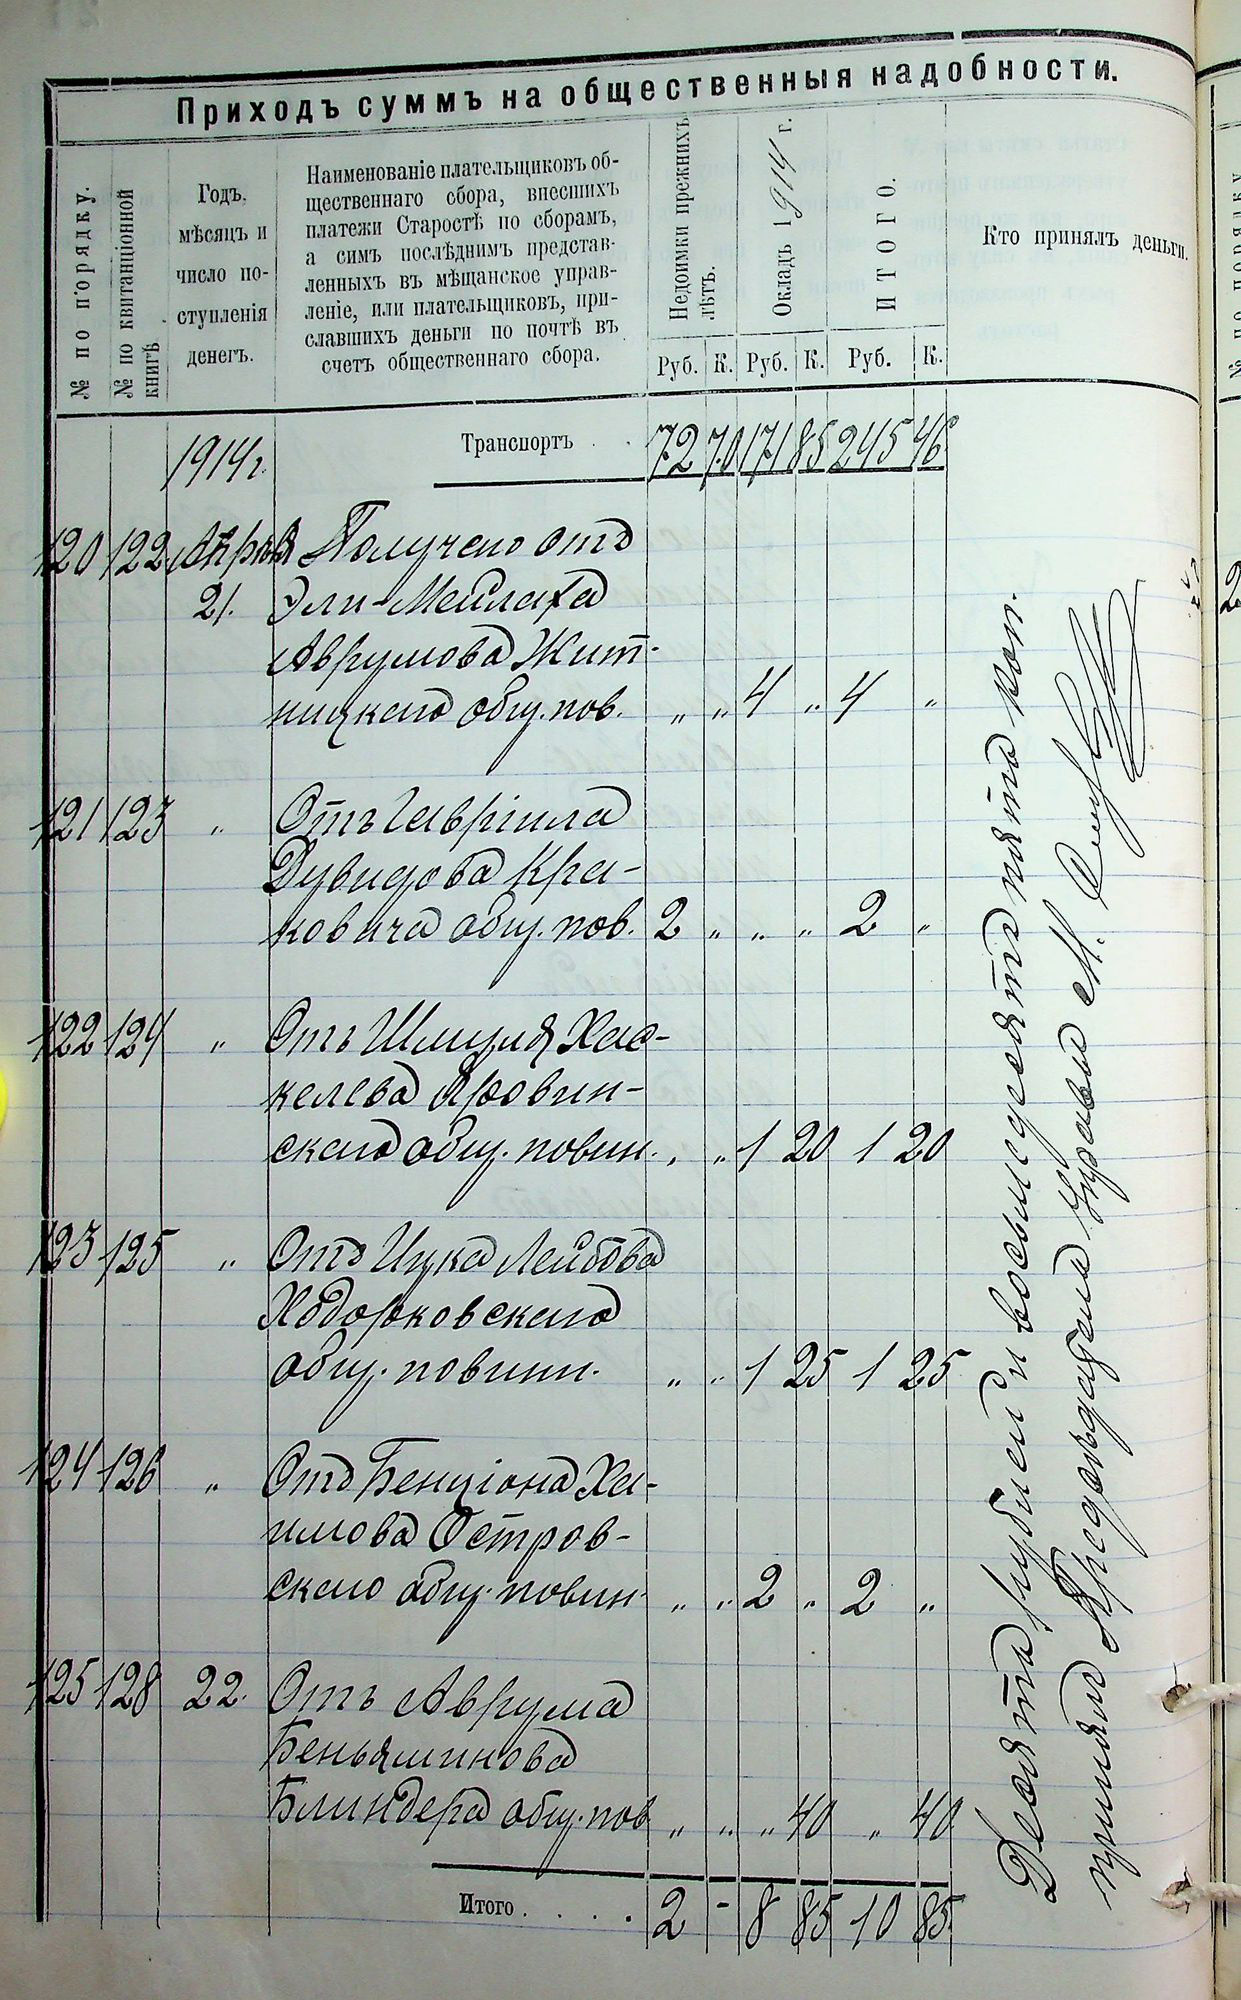 Приходъ суммъ на общественныя надобности.
№ по порядку.
№ по квитанціонной
книгѣ
Годъ,
мѣсяцъ и
число по-
ступленія
денегъ.
Наименованіе плательщиковъ об-
щественнаго сбора, внесшихъ
платежи Старостѣ по сборамъ,
а симъ послѣднимъ представ-
ленныхъ въ мѣщанское управ-
леніе, или плательщиковъ, при-
славшихъ деньги по почтѣ въ
счетъ общественнаго сбора.
Недоимки прежнихъ
лѣтъ.
Окладъ 1914 г.
ИТОГО.
Кто принялъ деньги.
Руб. К. Руб. К. Руб. К.
Транспортъ . . 72 70 171 85 245 46
1914 г.
120 122 Апрѣля Получено отъ
21. Эли-Мейлаха
Аврумова Жит-
ницкаго общ. пов. „ „ 4 „ 4 „
121 123 „ Отъ Гавріила
Дувидова Кра-
ковича общ. пов. 2 „ „ „ 2 „
122 124 „ Отъ Шмуля Хас-
келева Яровин-
скаго общ. повин. „ „ 1 20 1 20
123 125 „ Отъ Ицка Лейбова
Ходорковскаго
общ. повинн. „ „ 1 25 1 25
124 126 „ Отъ Бенціона Ха-
имова Островс-
скаго общ. повин „ „ 2 „ 2 „
125 128 22. Отъ Аврума
Беньяминова
Блиндера общ. пов „ „ „ 40 „ 40
Итого . . . . 2 - 8 85 10 85
Десять рублей и восемьдесятъ пять коп.
принялъ Предсѣдатель Управы М.